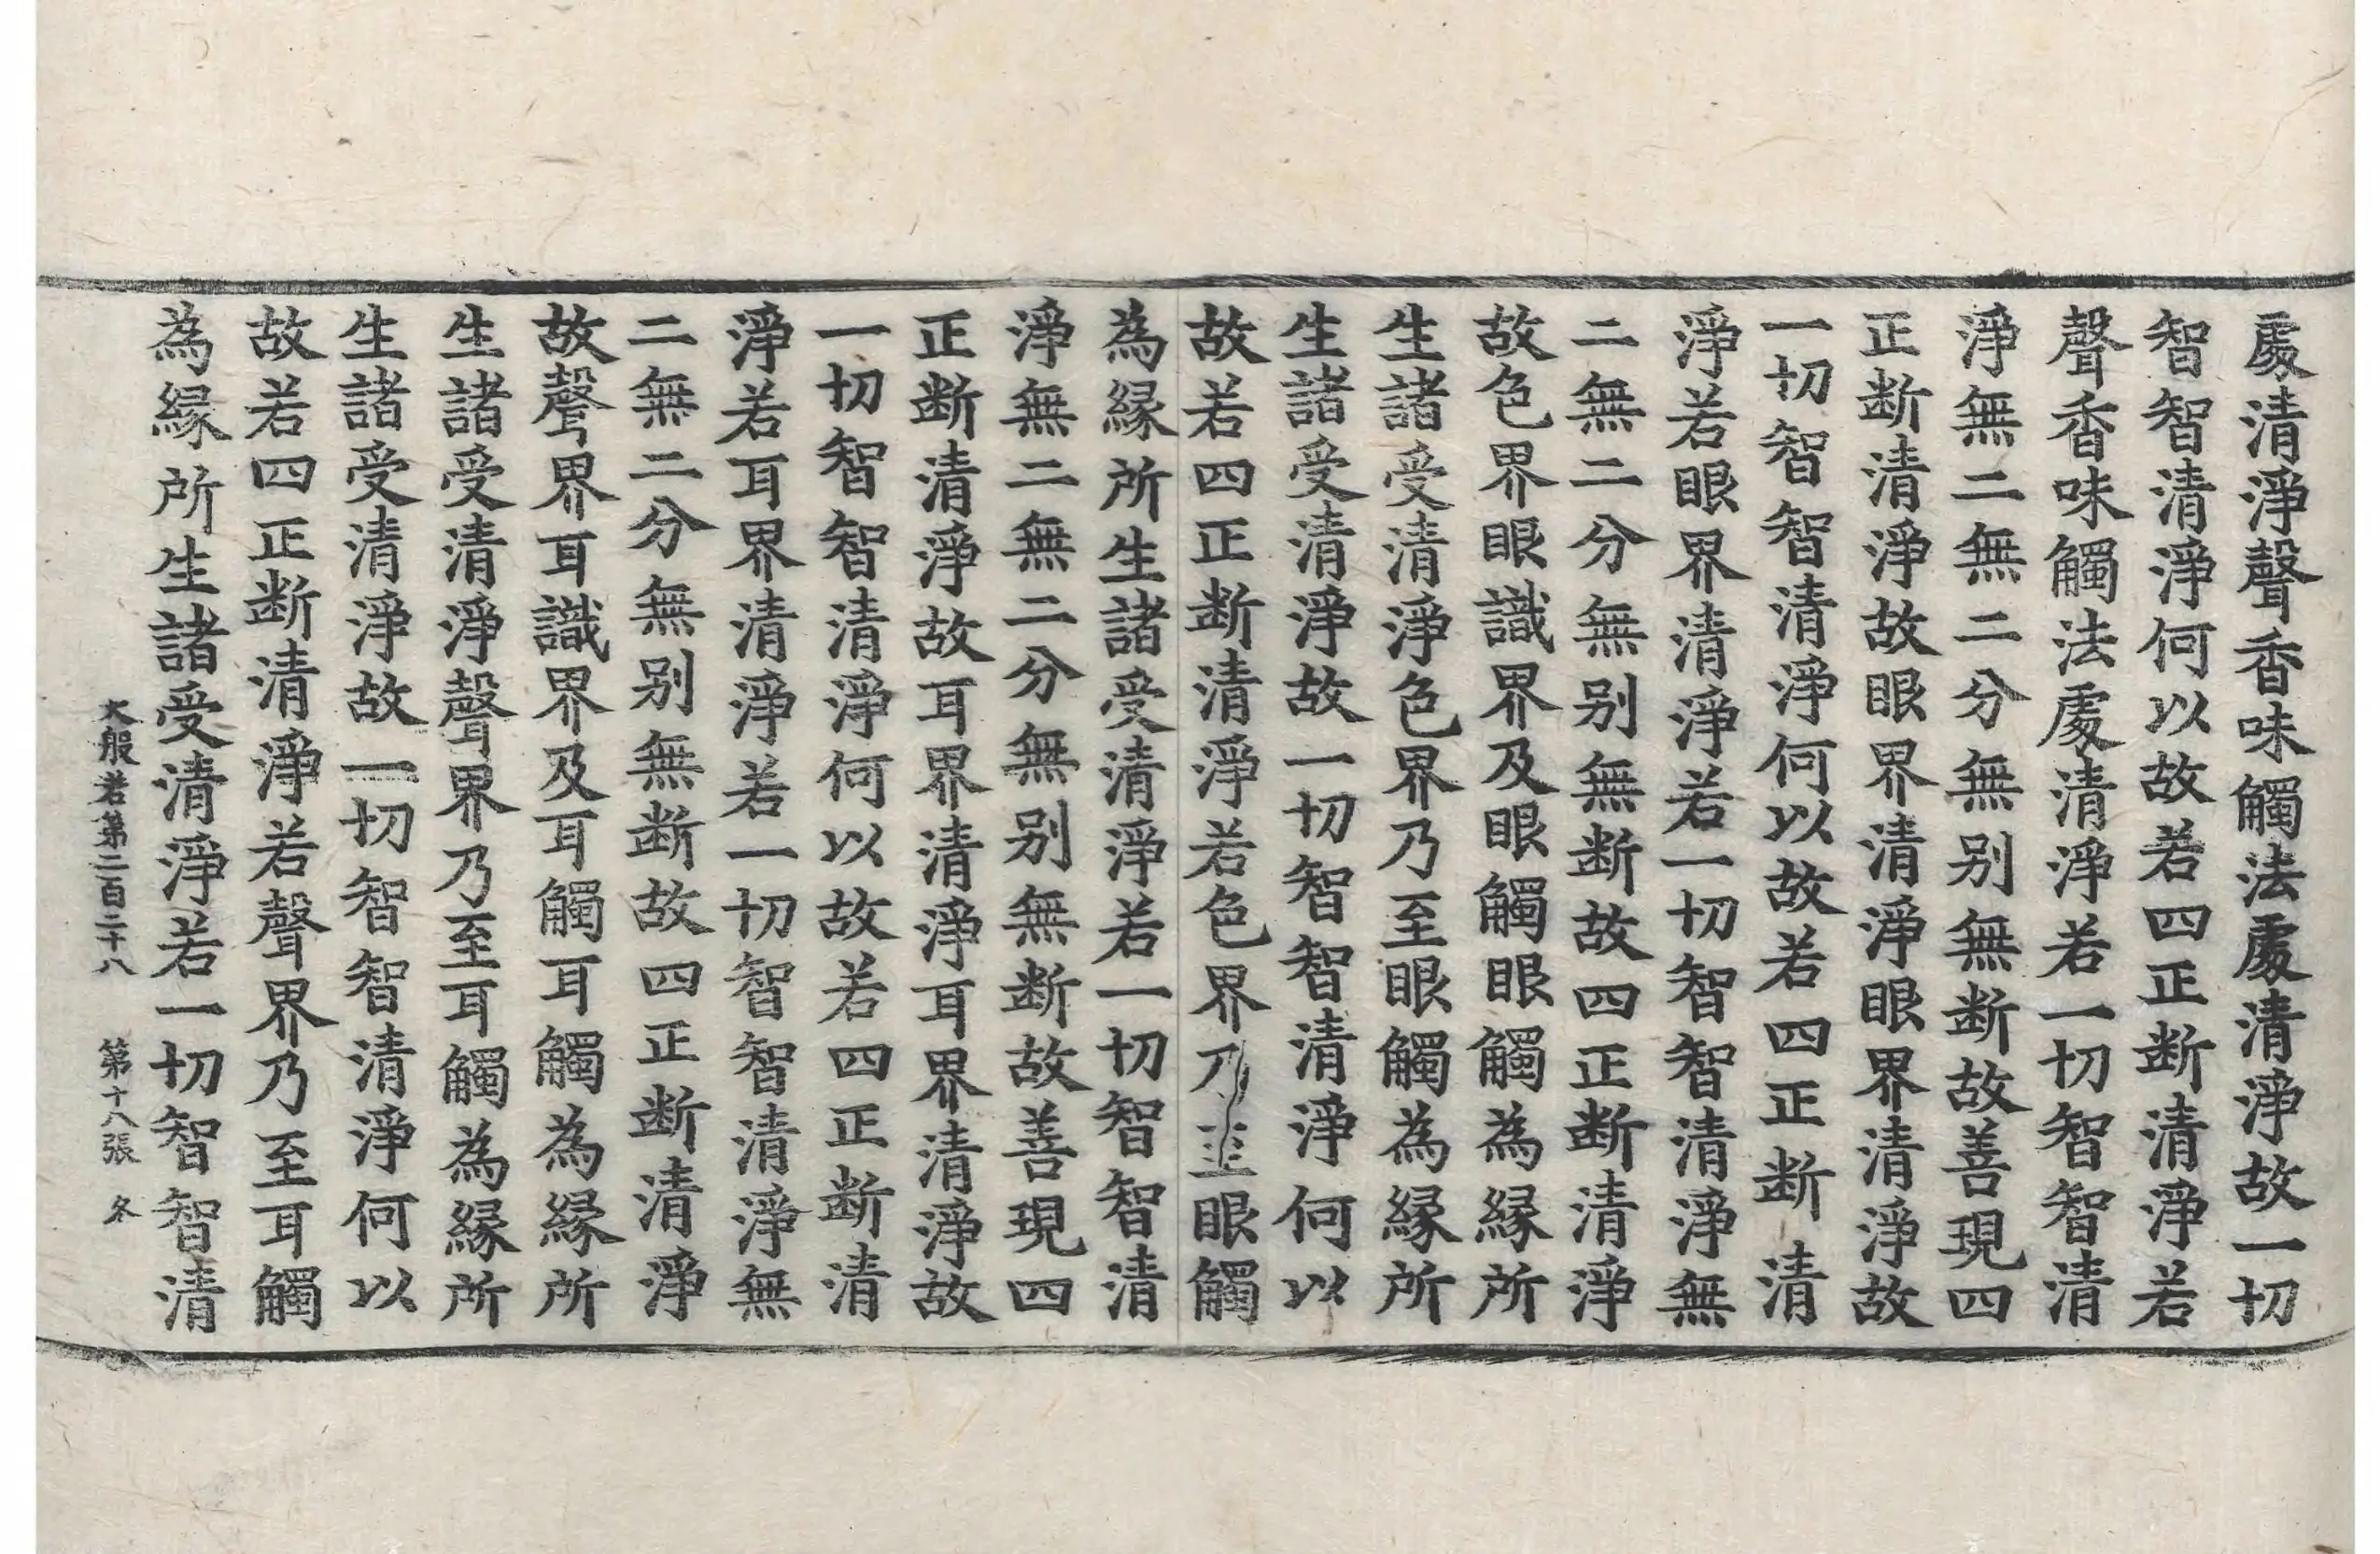 處清淨聲香味觸法處清淨故一切
智智清淨何以故若四正断清淨若
聲香味觸法處清淨若一切智智清
淨無二無二分無别無断故善現四
正断清淨故眼界清淨眼界清淨故
一切智智清淨何以故若四正断清
淨若眼界清淨若一切智智清淨無
二無二分無别無断故四正断清淨
故色界眼識界及眼觸眼觸為縁所
生諸受清淨色界乃至眼觸為縁所
生諸受清淨故一切智智清淨何以
故若四正断清淨若色界乃至眼觸
為縁所生諸受清淨若一切智智清
淨無二無二分無别無断故善現四
正断清淨故耳界清淨耳界清淨故
一切智智清淨何以故若四正断清
淨若耳界清淨若一切智智清淨無
二無二分無别無断故四正断清淨
故聲界耳識界及耳觸耳觸為縁所
生諸受清淨聲界乃至耳觸為縁所
生諸受清淨故一切智智清淨何以
故若四正断清淨若聲界乃至耳觸
為縁所生諸受清淨若一切智智清
大般若第二百二十八 第十八張 冬